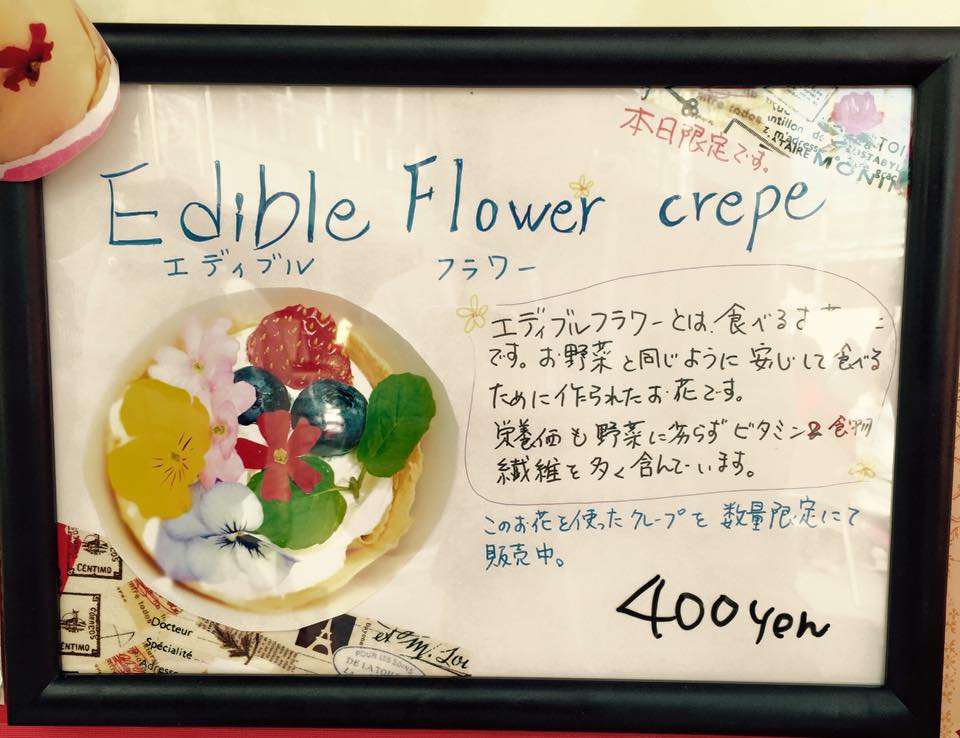 本日限定です。
Edible Flower crepe
エディブル フラワー
エディブルフラワーとは、食べるお
です。お野菜と同じように安心して食べる
ために作られたお花です。
栄養価も野菜に劣らずビタミンと食物
繊維を多く含んでいます。
このお花を使ったクレープを数量限定にて
販売中。
400yen
ntre todos
ntillon de
m'adresse
ATAIRE
MONIN
TOI
CENTIMO
Docteur
Spécialité
Adresse
et M. Loi
POUR LES SOINS
DE LA TOU